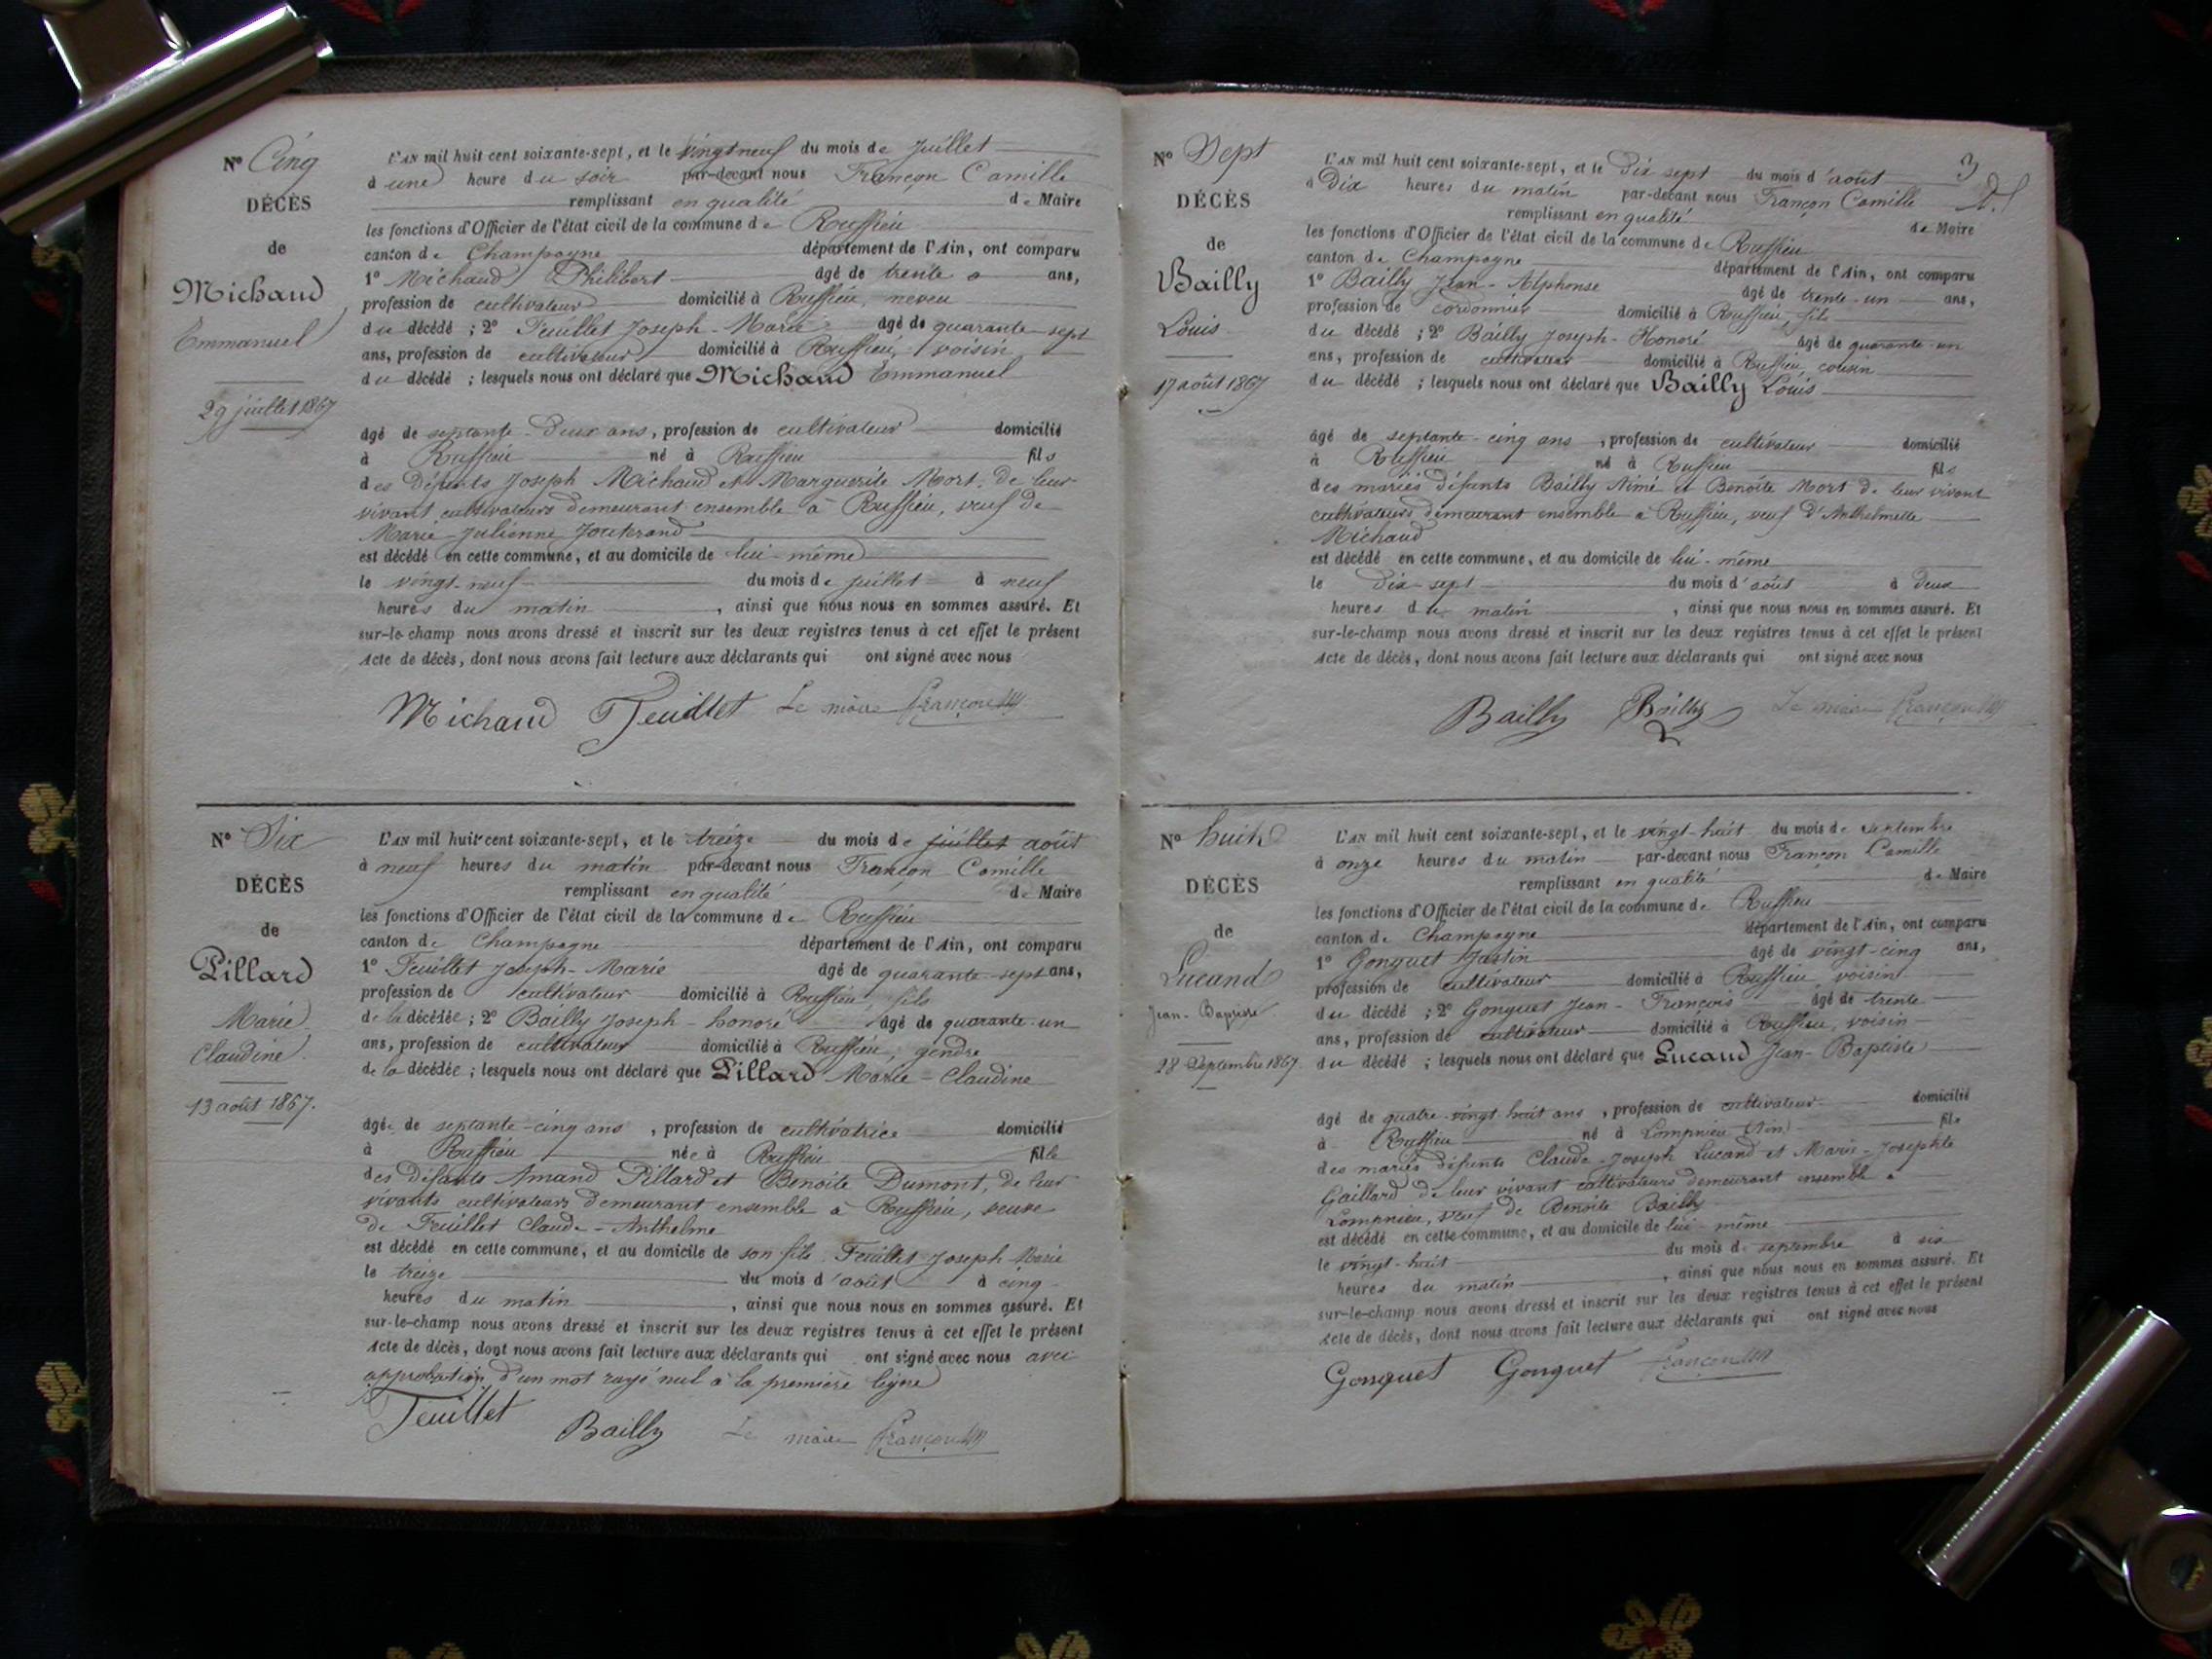 N° Cinq
DÉCÈS
de
Michaud
Emmanuel
29 juillet 1867
L'AN mil huit cent soixante-sept, et le vingt neuf du mois de juillet
à une heure du soir par-devant nous Françon Camille
remplissant en qualité de Maire
les fonctions d'Officier de l'état civil de la commune de Ruffieu
canton de Champagne département de l'Ain, ont comparu
1° Michaud Philibert âgé de trente ans,
profession de cultivateur domicilié à Ruffieu, neveu
du décédé ; 2° Feuillet Joseph-Marie âgé de quarante-sept
ans, profession de cultivateur domicilié à Ruffieu, voisin
du décédé ; lesquels nous ont déclaré que Michaud Emmanuel
âgé de septante-deux ans, profession de cultivateur domicilié
à Ruffieu né à Ruffieu fils
des défunts Joseph Michaud et Marguerite Mort, de leur
vivant cultivateurs demeurant ensemble à Ruffieu, veuf de
Marie Julienne
est décédé en cette commune, et au domicile de lui-même
le vingt-neuf du mois de juillet à neuf
heures du matin, ainsi que nous nous en sommes assuré. Et
sur-le-champ nous avons dressé et inscrit sur les deux registres tenus à cet effet le présent
Acte de décès, dont nous avons fait lecture aux déclarants qui ont signé avec nous
Michaud Feuillet Le maire Françon
N° Six
DÉCÈS
de
Pillard
Marie
Claudine
13 août 1867.
L'AN mil huit cent soixante-sept, et le treize du mois de juillet août
à neuf heures du matin par-devant nous Françon Camille
remplissant en qualité de Maire
les fonctions d'Officier de l'état civil de la commune de Ruffieu
canton de Champagne département de l'Ain, ont comparu
1° Feuillet Joseph-Marie âgé de quarante-sept ans,
profession de cultivateur domicilié à Ruffieu, fils
de la décédée ; 2° Bailly Joseph-honoré âgé de quarante-un
ans, profession de cultivateur domicilié à Ruffieu, gendre
de la décédée ; lesquels nous ont déclaré que Pillard Marie-Claudine
âgée de septante-cinq ans, profession de cultivatrice domicilié
à Ruffieu née à Ruffieu fille
des défunts Amand Pillard et Benoîte Dumont, de leur
vivants cultivateurs demeurant ensemble à Ruffieu, veuve
de Feuillet Claude-Anthelme
est décédé en cette commune, et au domicile de son fils Feuillet Joseph Marie
le treize du mois d'août à cinq
heures du matin, ainsi que nous nous en sommes assuré. Et
sur-le-champ nous avons dressé et inscrit sur les deux registres tenus à cet effet le présent
Acte de décès, dont nous avons fait lecture aux déclarants qui ont signé avec nous avec
approbation d'un mot rayé nul à la première ligne
Feuillet Bailly Le maire Françon
3
N° Sept
DÉCÈS
de
Bailly
Louis
17 août 1867
L'AN mil huit cent soixante-sept, et le dix sept du mois d'août
à Dix heures du matin par-devant nous Françon Camille
remplissant en qualité de Maire
les fonctions d'Officier de l'état civil de la commune de Ruffieu
canton de Champagne département de l'Ain, ont comparu
1° Bailly Jean-Alphonse âgé de trente-un ans,
profession de cordonnier domicilié à Ruffieu, fils
du décédé ; 2° Bailly Joseph-Honoré âgé de quarante-un
ans, profession de cultivateur domicilié à Ruffieu, cousin
du décédé ; lesquels nous ont déclaré que Bailly Louis
âgé de septante-cinq ans, profession de cultivateur domicilié
à Ruffieu né à Ruffieu fils
des mariés défunts Bailly Aimé et Benoîte Mort de leur vivant
cultivateurs demeurant ensemble à Ruffieu, veuf d'Anthelmette
Michaud
est décédé en cette commune, et au domicile de lui-même
le dix sept du mois d'août à deux
heures du matin, ainsi que nous nous en sommes assuré. Et
sur-le-champ nous avons dressé et inscrit sur les deux registres tenus à cet effet le présent
Acte de décès, dont nous avons fait lecture aux déclarants qui ont signé avec nous
Bailly Bailly Le maire Françon
N° huit
DÉCÈS
de
Lucand
Jean-Baptiste
28 Septembre 1867
L'AN mil huit cent soixante-sept, et le vingt-huit du mois de septembre
à onze heures du matin par-devant nous Françon Camille
remplissant en qualité de Maire
les fonctions d'Officier de l'état civil de la commune de Ruffieu
canton de Champagne département de l'Ain, ont comparu
1° Gonguet Justin âgé de vingt-cinq ans,
profession de cultivateur domicilié à Ruffieu, voisin
du décédé ; 2° Gonguet Jean-François âgé de trente
ans, profession de cultivateur domicilié à Ruffieu, voisin
du décédé ; lesquels nous ont déclaré que Lucand Jean-Baptiste
âgé de quatre-vingt-huit ans, profession de cultivateur domicilié
à Ruffieu né à Lompnieu (Ain) fils
des mariés défunts Claude-Joseph Lucand et Marie-Josephte
Gaillard de leur vivant cultivateurs demeurant ensemble à
Lompnieu, veuf de Benoîte Bailly
est décédé en cette commune, et au domicile de lui-même
le vingt-huit du mois de septembre à six
heures du matin, ainsi que nous nous en sommes assuré. Et
sur-le-champ nous avons dressé et inscrit sur les deux registres tenus à cet effet le présent
Acte de décès, dont nous avons fait lecture aux déclarants qui ont signé avec nous
Gonguet Gonguet Françon